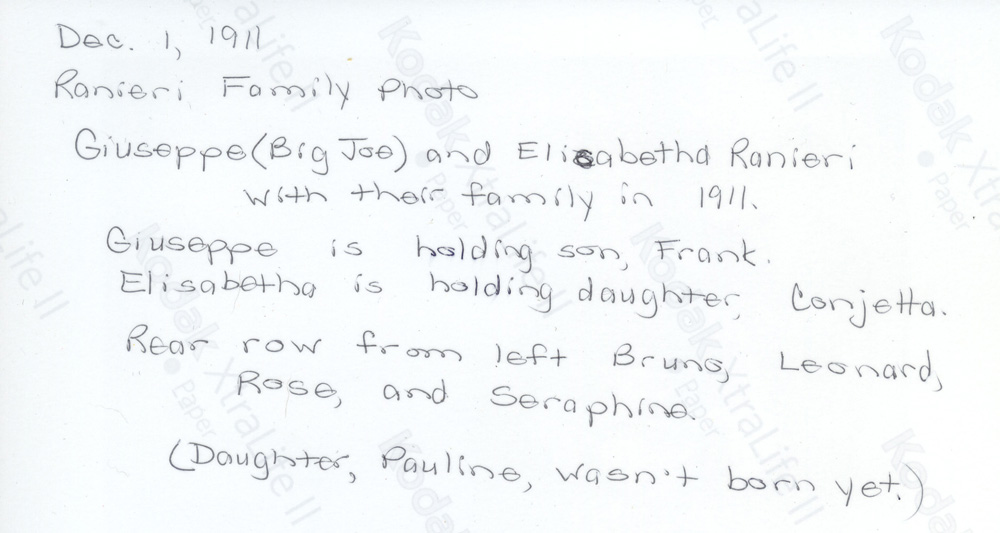 Dec. 1, 1911
Ranieri Family Photo
Giuseppe (Big Joe) and Elisabetha Ranieri
with their family in 1911.
Giuseppe is holding son, Frank.
Elisabetha is holding daughter, Conjetta.
Rear row from left Bruno, Leonard,
Rose, and Seraphine.
(Daughter, Pauline, wasn't born yet.)
Kodak XtraLife II
Paper